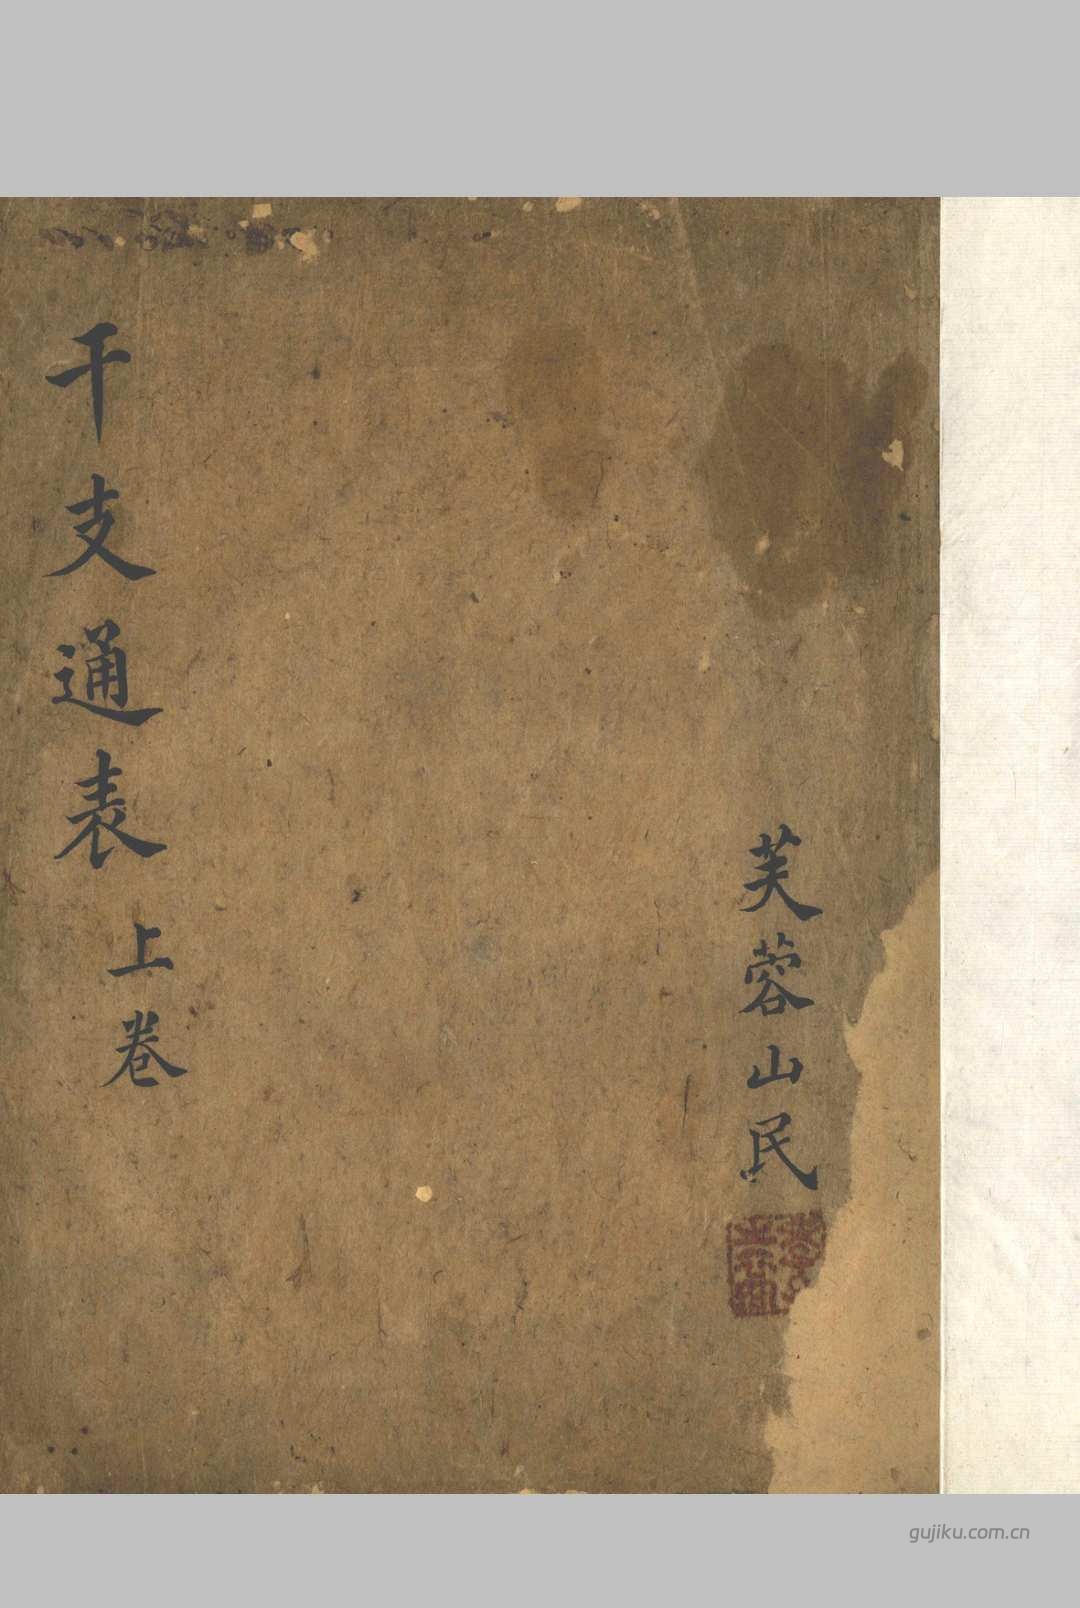 芙蓉山民
干支通表上卷
gujiku.com.cn